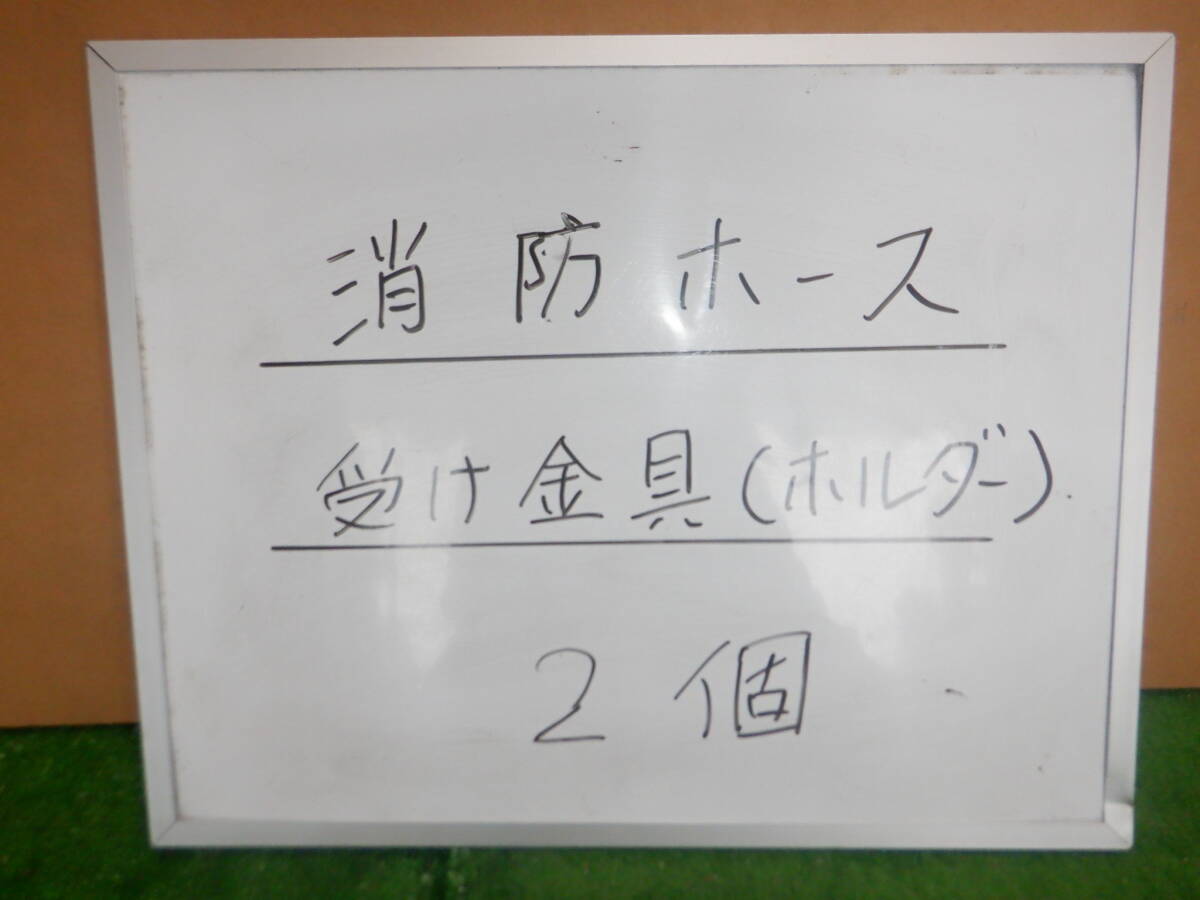 消防ホース
受け金具(ホルダー)
2個